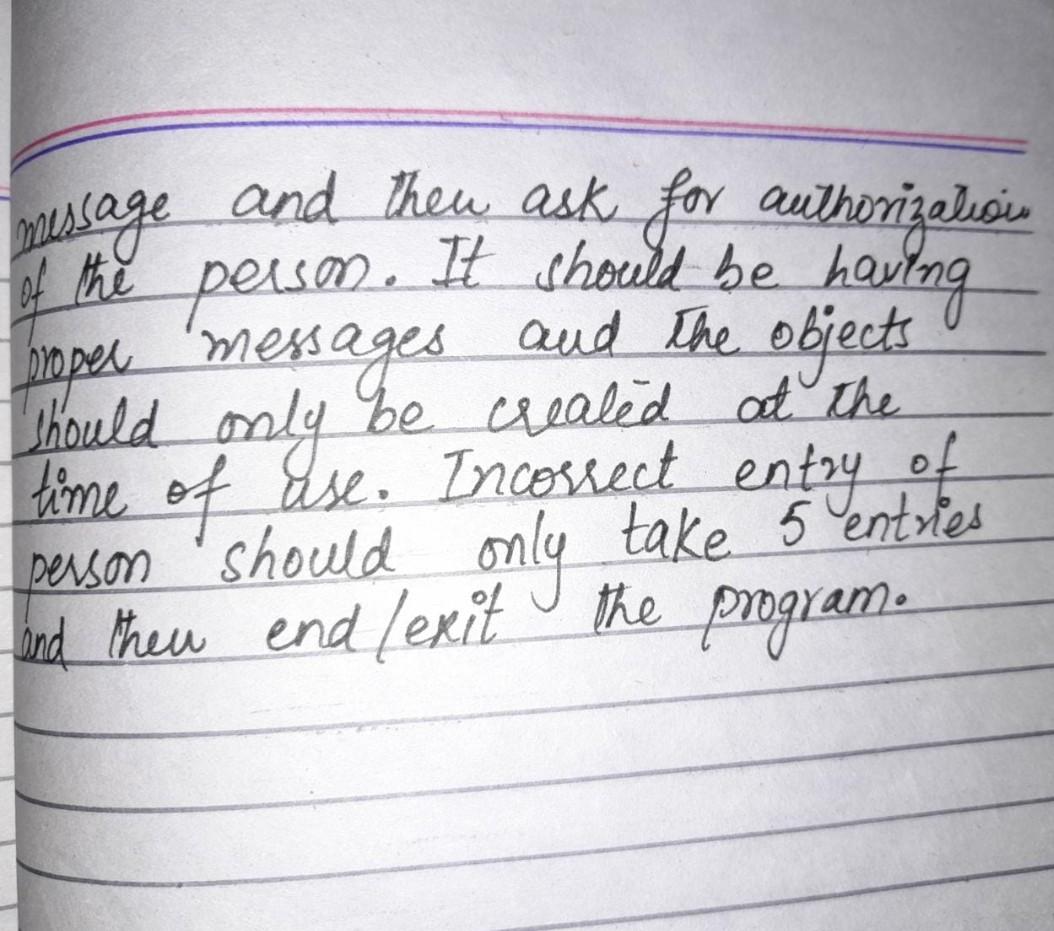 message and then ask for authorization
of the person. It should be having
proper messages and the objects
should only be created at the
time of use. Incorrect entry of
person should only take 5 entries
and then end/exit the program.